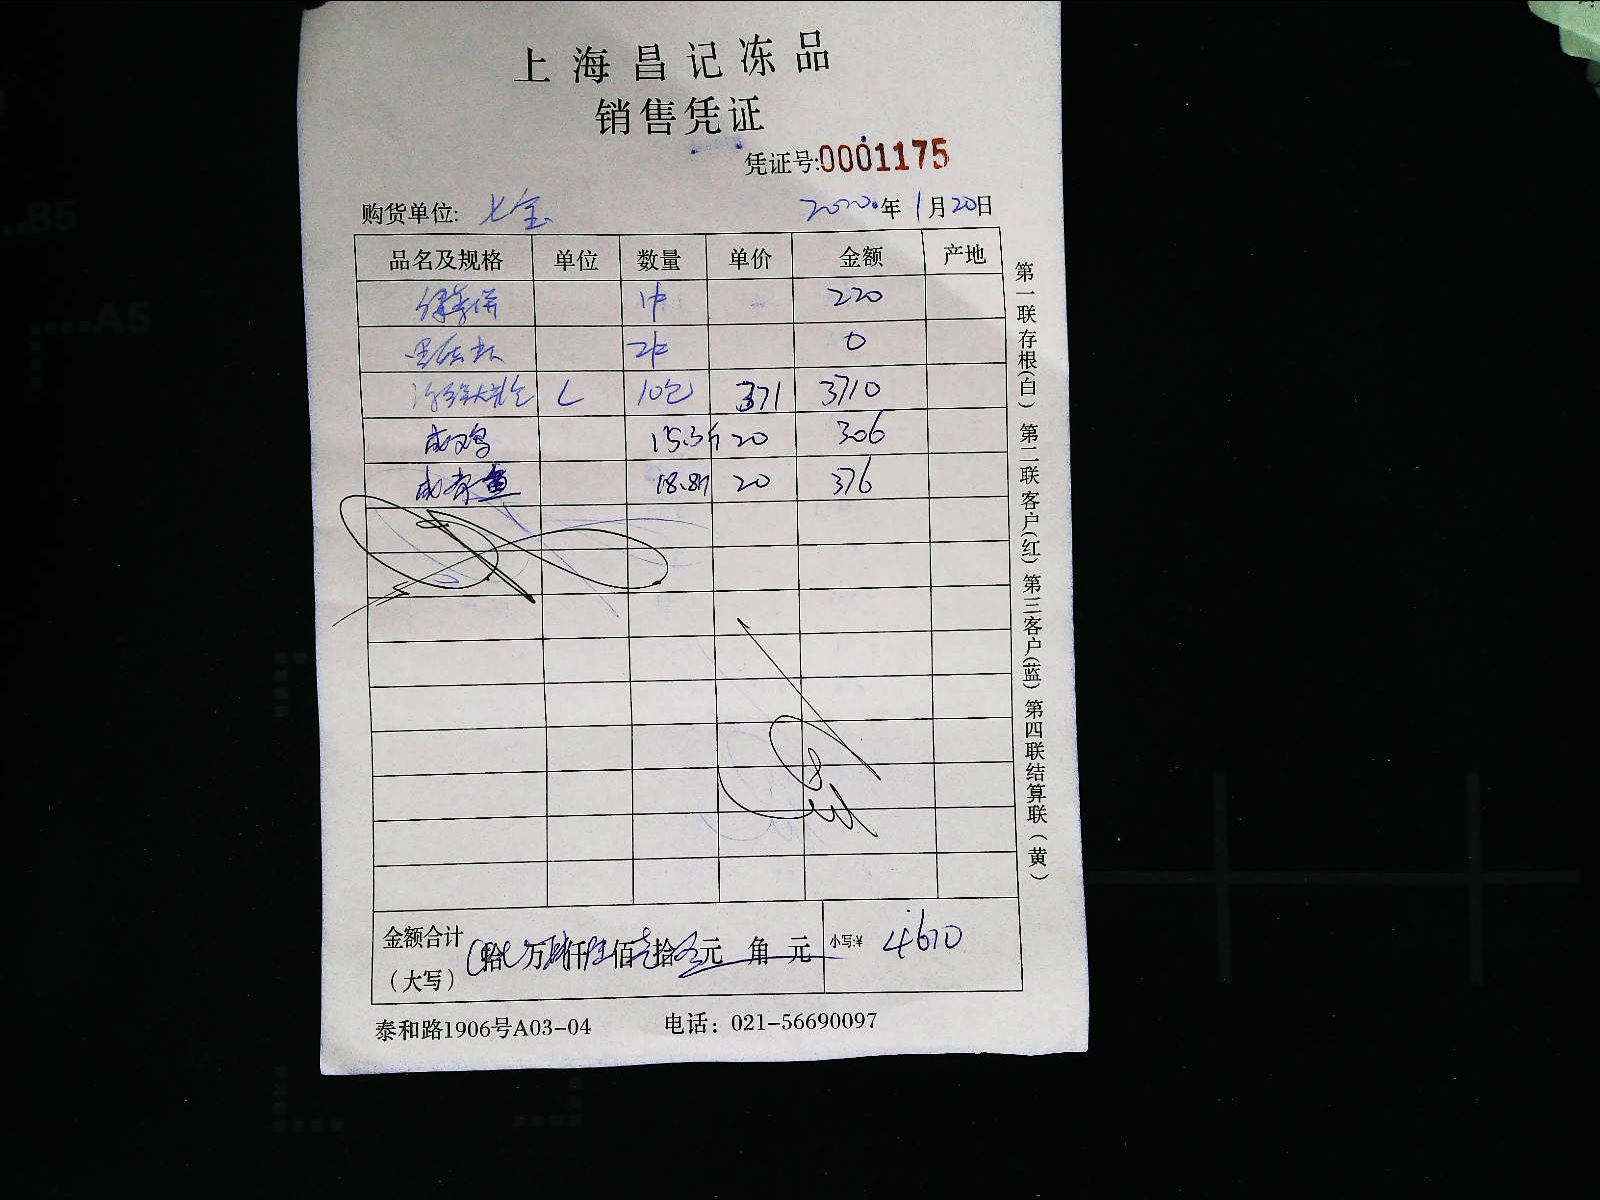 上海昌记冻品
销售凭证
凭证号:0001175
购货单位: 七宝 2020年1月20日
品名及规格 单位 数量 单价 金额 产地
1件 220
2件 0
L 10包 371 3710
成鸡 15.3斤 20 306
成青鱼 18.8斤 20 376
金额合计 拾 万 仟 佰 拾 元 角 元 小写:¥ 4610
（大写）
泰和路1906号A03-04 电话：021-56690097
第一联存根(白) 第二联客户(红) 第三客户(蓝) 第四联结算联(黄)